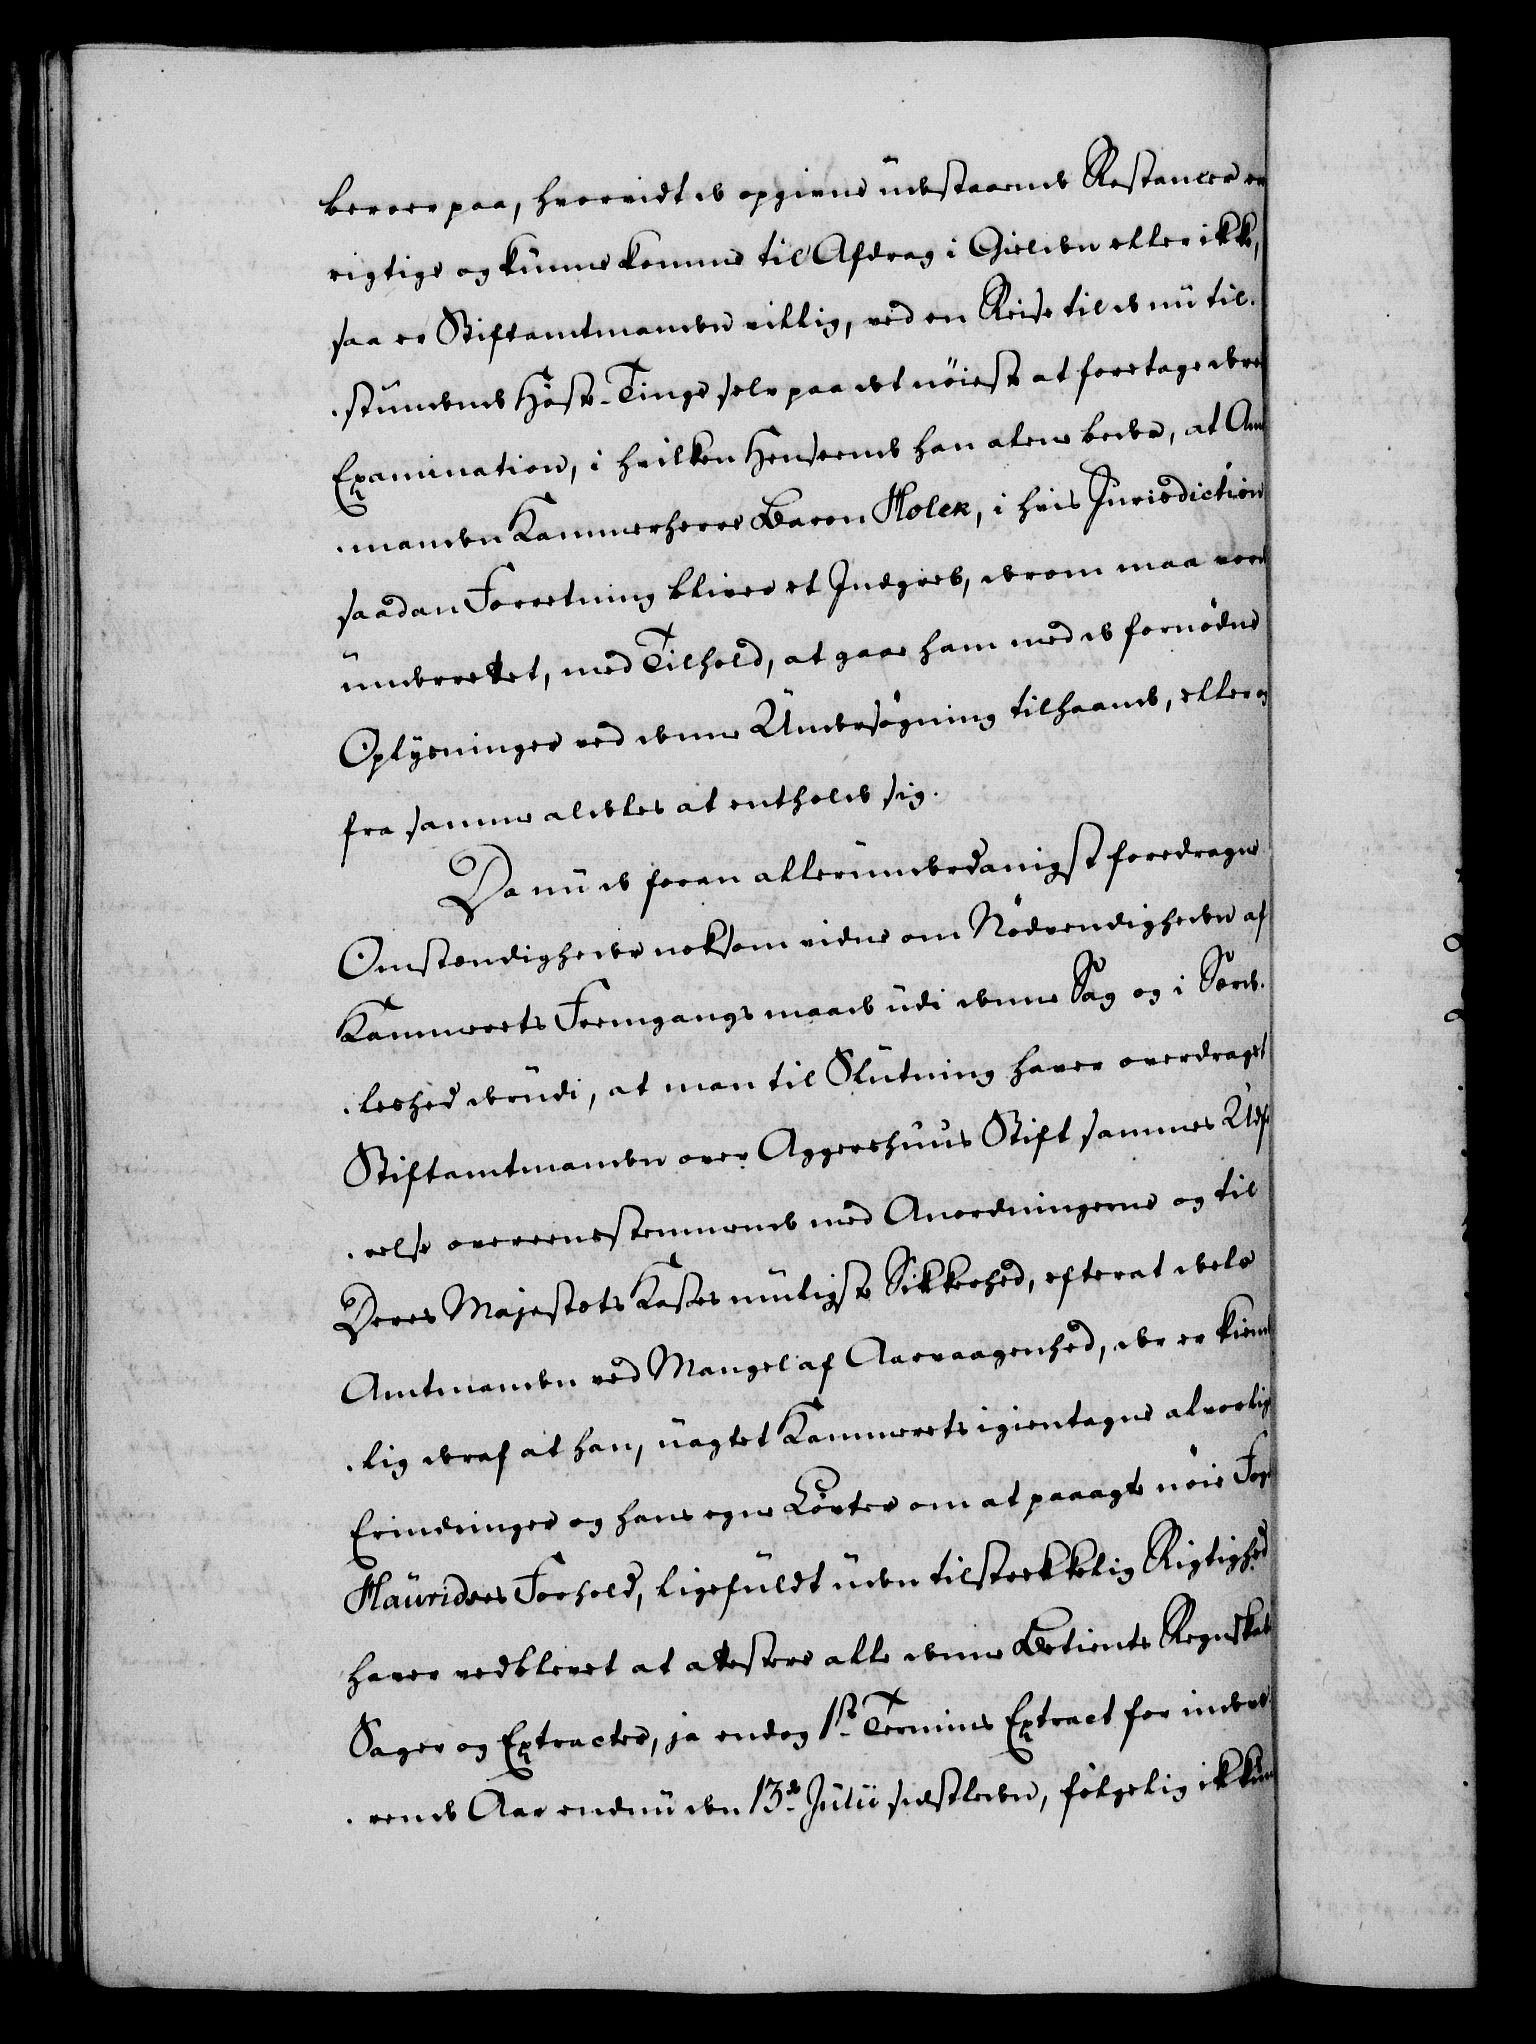 beroer paa, hvorvidt de opgivne udestaaende Restancer er
rigtige og kunne komme til Afdrag i Gielden eller ikke,
saa er Stiftamtmanden villig, ved en Reise til de nu til-
-stundende Høste-Tinge selv paa det nøieste at foretage deres
Examination, i hvilken Henseende han alene beder, at Amt
-manden Kammerherre Baron Holck, i hvis Jurisdiction
saadan Forretning bliver et Indgreb, derom maa vorde
underrettet, med Tilhold, at gaae ham med de fornødne
Oplysninger ved denne Undersøgning tilhaande, eller og
fra samme aldeles at entholde sig.
Da nu de foran allerunderdanigst foredragne
Omstændigheder noksom vidne om Nødvendigheden af
Kammerets Fremgangsmaade udi denne Sag og i Særde-
-leshed derudi, at man til Slutning haver overdraget
Stiftamtmanden over Aggershuus Stift sammes Udfø
-relse overeensstemmende med Anordningerne og til
Deres Majestæts Kasses muligste Sikkerhed, efterat deels
Amtmanden ved Mangel af Aarvaagenhed, der er kiende
-lig deraf at han, uagtet Kammerets igientagne alvorlige
Erindringer og hans egne Løvter om at paaagte nøie Foged
Hauriders Forhold, ligefuldt uden tilstrekkelig Rigtighed
haver vedblevet at attestere alle denne Betients Regnskabs
Sager og Extracter, ja endog 1ste Termins Extract for indevæ
-rende Aar endnu den 13de Julii sidstleden, følgelig ikkun